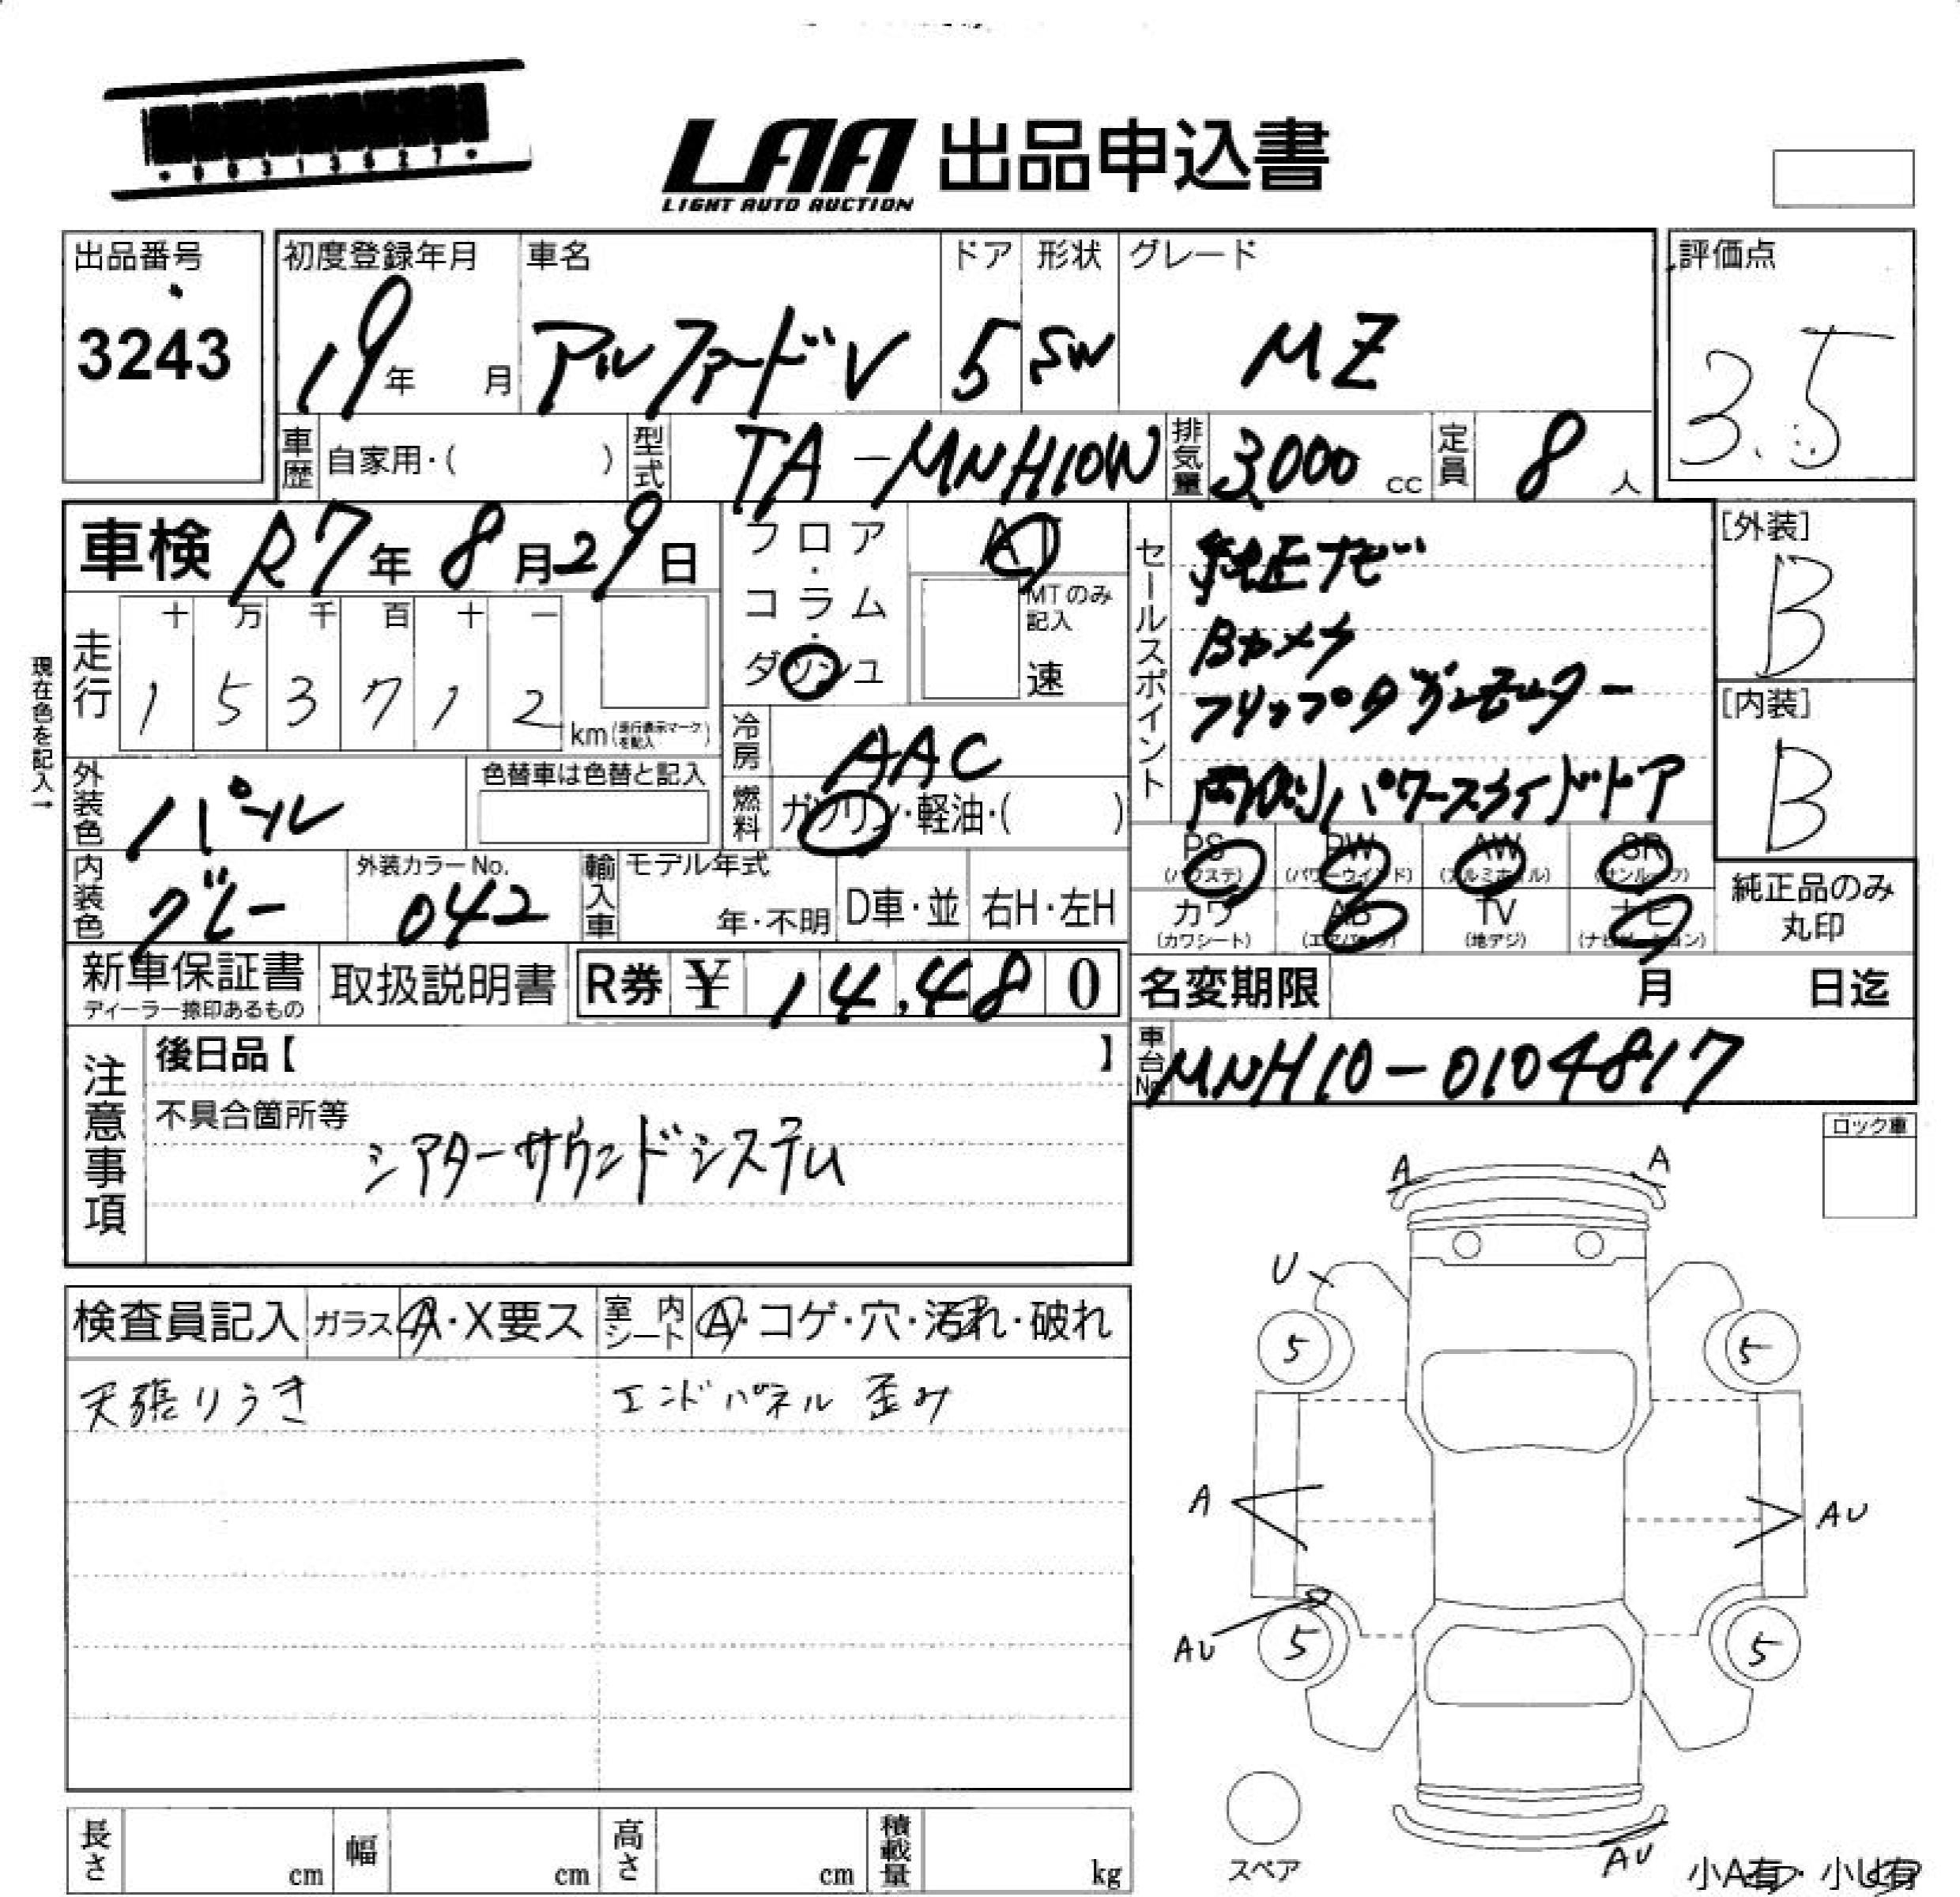 *00313627*
LAA 出品申込書
LIGHT AUTO AUCTION
出品番号
3243
初度登録年月
19年 月
車名
アルファードV
ドア
5
形状
SW
グレード
MZ
評価点
3.5
車歴 自家用・( )
型式 TA-MNH10W
排気量 3,000 cc
定員 8 人
車検 R7年 8月29日
フロア・コラム・ダッシュ
AT
MTのみ記入
速
セールスポイント
純正ナビ
Bカメラ
フリップダウンモニター
両側パワースライドドア
[外装]
B
[内装]
B
現在色を記入→
走行
十 万 千 百 十 一
1 5 3 7 1 2
km(走行表示マークを記入)
冷房 AAC
燃料 ガソリン・軽油・( )
外装色 パール
色替車は色替と記入
内装色 グレー
外装カラーNo.
042
輸入車
モデル年式
年・不明
D車・並
右H・左H
PS
(パワステ)
PW
(パワーウインド)
AW
(アルミホイル)
SR
(サンルーフ)
カワ
(カワシート)
AB
(エアバッグ)
TV
(地デジ)
ナビ
(ナビゲーション)
純正品のみ
丸印
新車保証書
ディーラー捺印あるもの
取扱説明書
R券 ¥ 14,480
名変期限 月 日迄
車台No. MNH10-0104817
注意事項
後日品【 】
不具合箇所等
シアターサウンドシステム
ロック車
検査員記入
ガラス A・X要ス
室内シート A・コゲ・穴・汚れ・破れ
天張りうき
エンドパネル 歪み
A
A
U
5
5
A
AU
AU
5
5
スペア
AU
小A有・小U有
長さ cm
幅 cm
高さ cm
積載量 kg